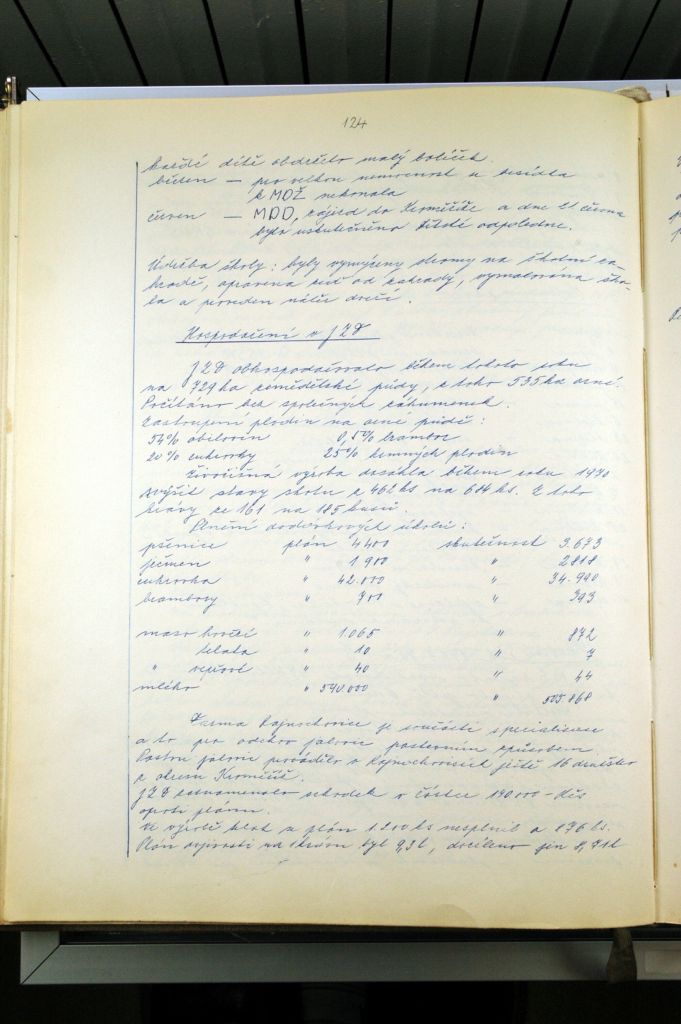 124
každé dítě obdrželo malý balíček.
březen — pro velkou nemocnost se besídka
k MDŽ nekonala
červen — MDD, zájezd do Kroměříže a dne 11 června
bylo uskutečněno dětské odpoledne.
Údržba školy: byly vymýceny stromy na školní za-
hradě, opravena zeď od zahrady, vymalována ško-
la a proveden nátěr dveří.
Hospodaření v JZD
JZD obhospodařovalo během tohoto roku
na 729 ha zemědělské půdy, z toho 535 ha orné.
Počítáno bez společných záhumenek.
Zastoupení plodin na orné půdě:
54% obilovin 0,5% brambor
20% cukrovky 25% krmných plodin
Živočišná výroba dosáhla během roku 1970
zvýšit stavy skotu z 462 ks na 604 ks. Z toho
krávy ze 161 na 185 kusů.
Plnění dodávkových úkolů:
pšenice plán 4400 skutečnost 3.673
ječmen " 1900 " 2818
cukrovka " 42.000 " 34.990
brambory " 700 " 393
maso hovězí " 1.065 " 872
telata " 10 " 7
" vepřové " 40 " 44
mléko " 540.000 " 505.868
Farma Rajnochovice je součástí specialisace
a to pro odchov jalovic pastevním způsobem.
Pastvu jalovic provádělo v Rajnochovicích ještě 16 družstev
z okresu Kroměříž.
JZD zaznamenalo schodek v částce 190000 - Kčs
oproti plánu.
Ve výrobě selat se plán 1200 ks nesplnil o 176 ks.
Plán dojivosti na krávu byl 9,3 l, docíleno jen 8,71 l